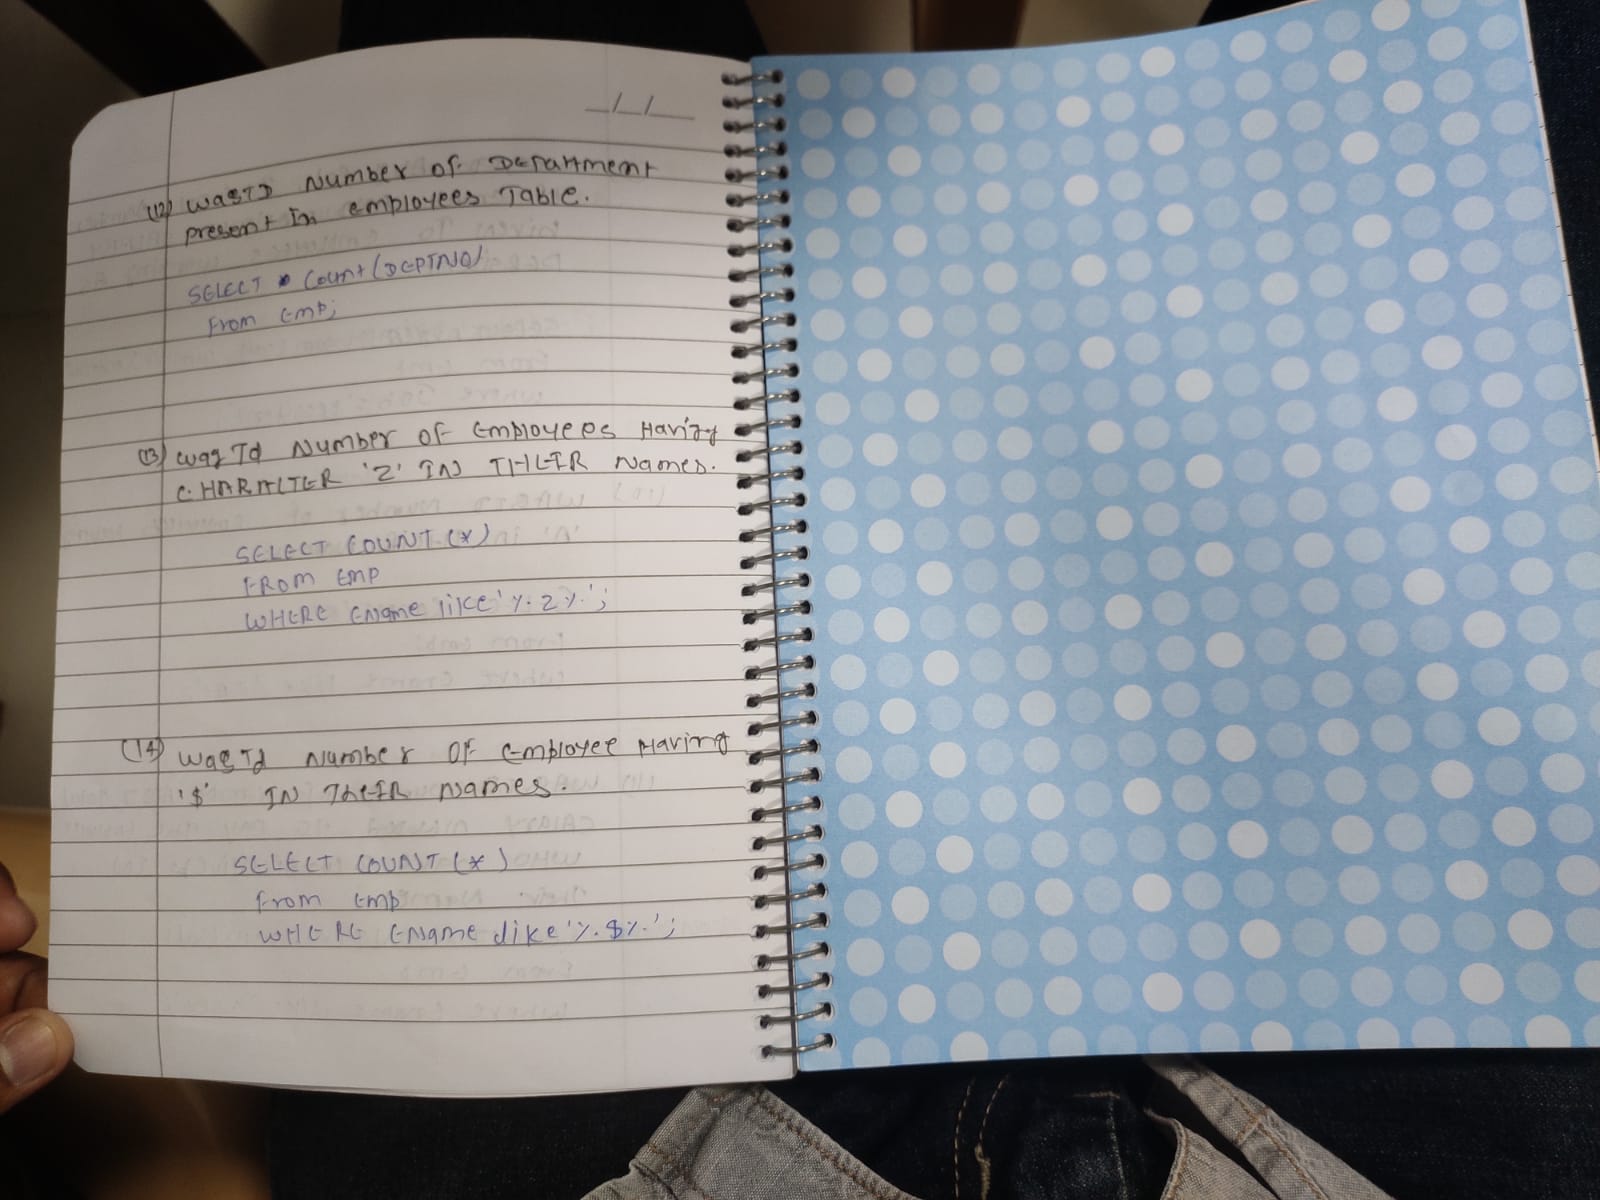 _/_/__
(12) WAQTD Number of Department
present In employees Table.
SELECT Count(DEPTNO)
From Emp;
(13) WAQTd Number of Employees Having
CHARACTER 'Z' IN THEIR Names.
SELECT COUNT(*)
FROM Emp
WHERE Ename like '%Z%';
(14) WAQTd Number OF Employee Having
'$' IN THEIR Names.
SELECT COUNT(*)
From Emp
WHERE Ename like '%$%';